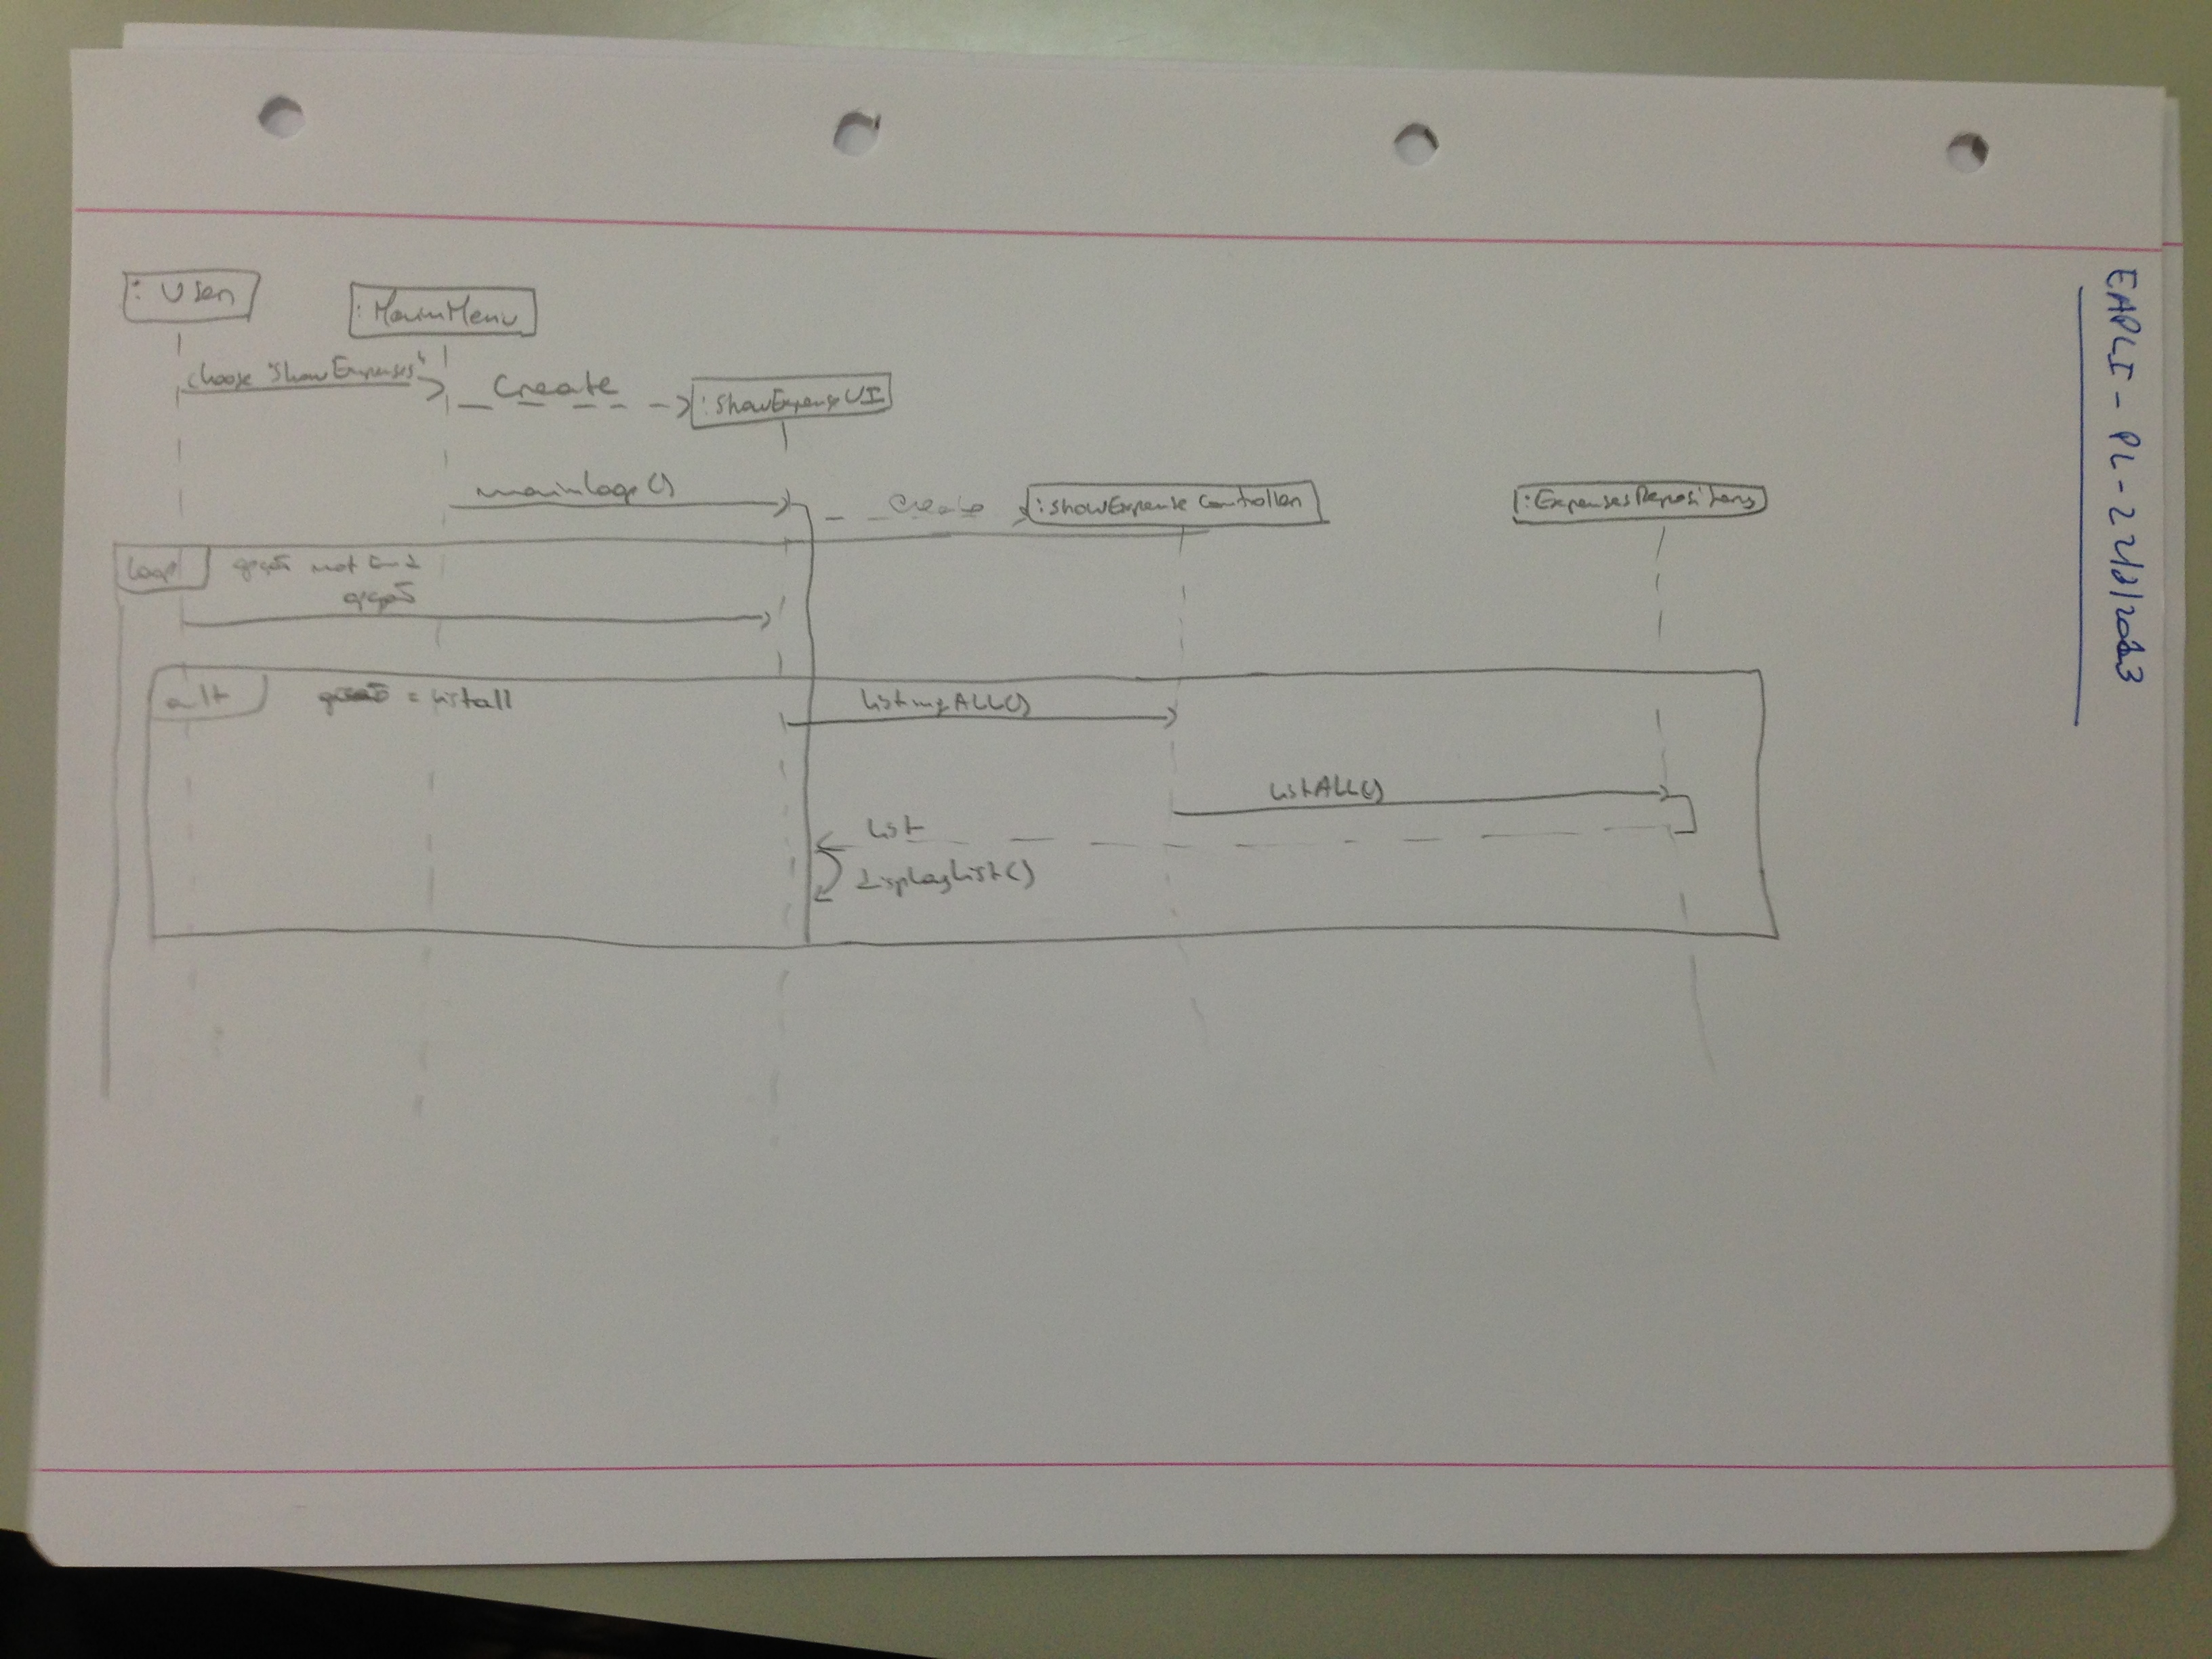 : User
: MainMenu
choose "ShowExpenses"
Create
: ShowExpenseUI
mainloop()
Create
: ShowExpense Controller
: ExpensesRepository
loop
opção not in
opção
alt
opção = listall
listingALL()
listALL()
list
displaylist()
EAPLI - PL - 2